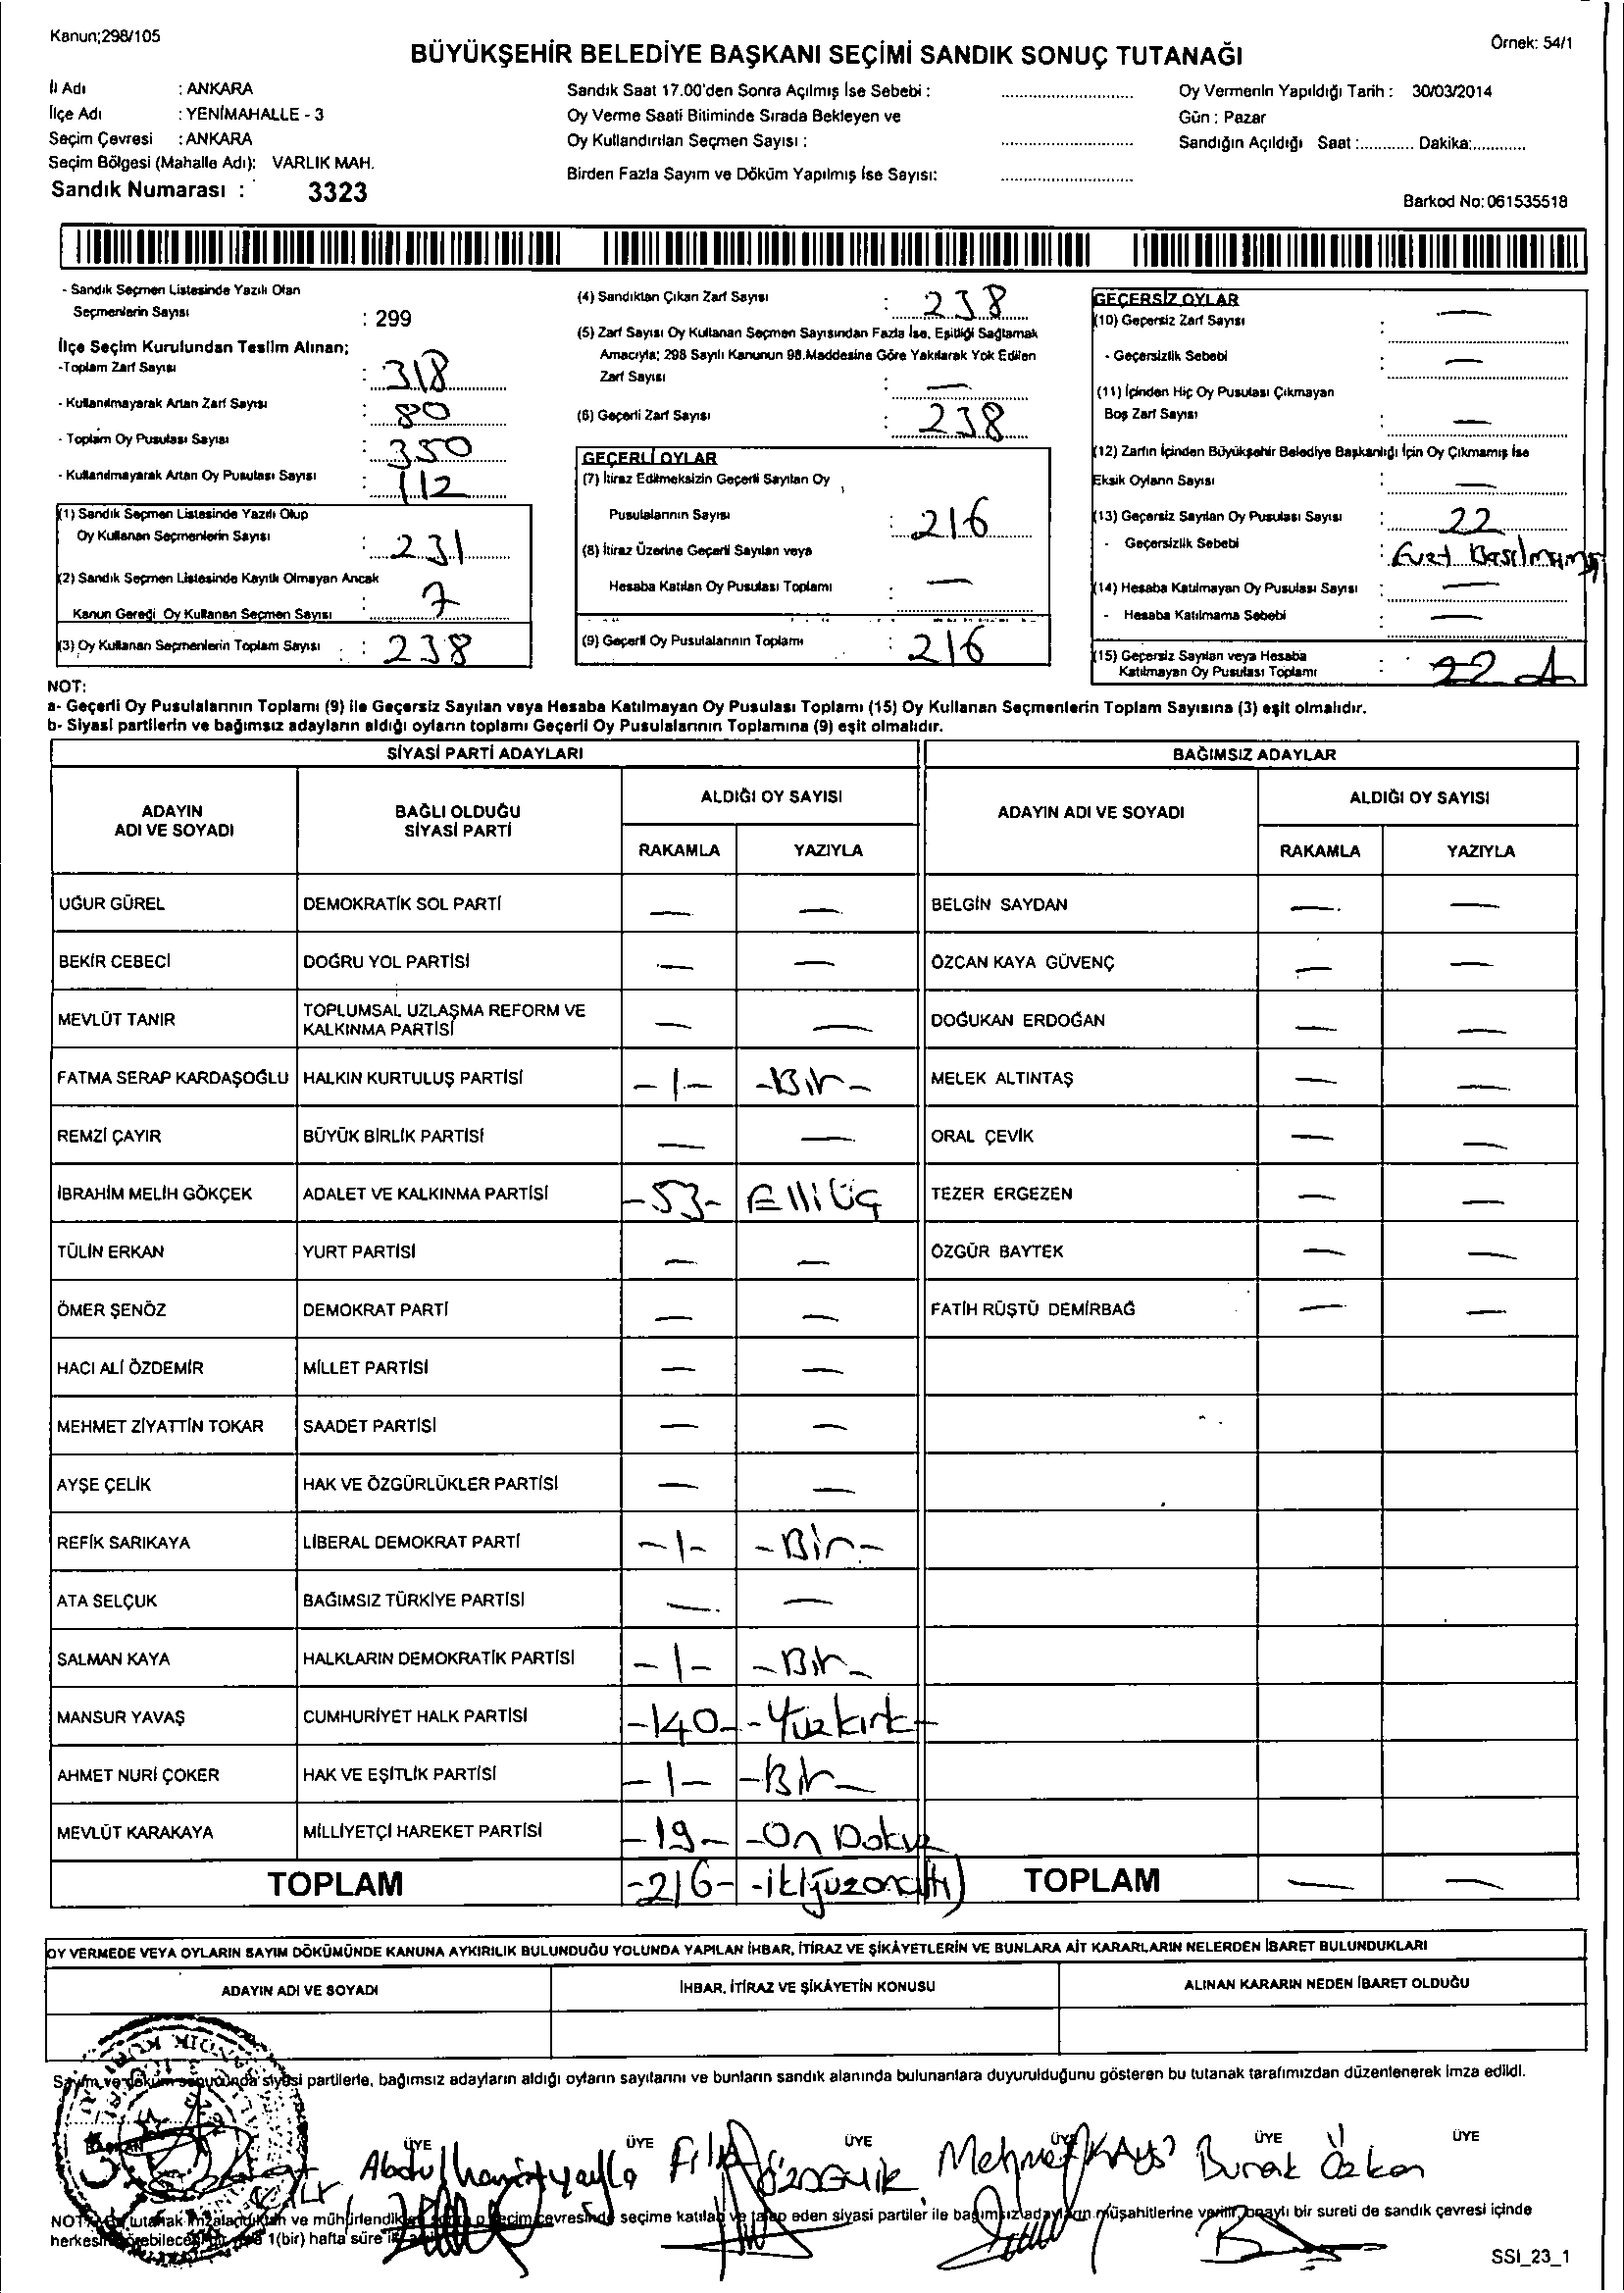 Kanun;298/105
Örnek: 54/1
BÜYÜKŞEHİR BELEDİYE BAŞKANI SEÇİMİ SANDIK SONUÇ TUTANAĞI
İl Adı : ANKARA
İlçe Adı : YENİMAHALLE - 3
Seçim Çevresi : ANKARA
Seçim Bölgesi (Mahalle Adı): VARLIK MAH.
Sandık Numarası : 3323
Sandık Saat 17.00'den Sonra Açılmış İse Sebebi :
Oy Verme Saati Bitiminde Sırada Bekleyen ve
Oy Kullandırılan Seçmen Sayısı :
Birden Fazla Sayım ve Döküm Yapılmış İse Sayısı:
Oy Vermenin Yapıldığı Tarih : 30/03/2014
Gün : Pazar
Sandığın Açıldığı Saat :............ Dakika:............
Barkod No: 061535518
- Sandık Seçmen Listesinde Yazılı Olan
Seçmenlerin Sayısı : 299
İlçe Seçim Kurulundan Teslim Alınan;
-Toplam Zarf Sayısı : 318
- Kullanılmayarak Artan Zarf Sayısı : 80
- Toplam Oy Pusulası Sayısı : 350
- Kullanılmayarak Artan Oy Pusulası Sayısı : 112
(1) Sandık Seçmen Listesinde Yazılı Olup
Oy Kullanan Seçmenlerin Sayısı : 231
(2) Sandık Seçmen Listesinde Kayıtlı Olmayan Ancak
Kanun Gereği Oy Kullanan Seçmen Sayısı : 7
(3) Oy Kullanan Seçmenlerin Toplam Sayısı : 238
(4) Sandıktan Çıkan Zarf Sayısı : 238
(5) Zarf Sayısı Oy Kullanan Seçmen Sayısından Fazla İse, Eşitliği Sağlamak
Amacıyla; 298 Sayılı Kanunun 98.Maddesine Göre Yakılarak Yok Edilen
Zarf Sayısı : —
(6) Geçerli Zarf Sayısı : 238
GEÇERLİ OYLAR
(7) İtiraz Edilmeksizin Geçerli Sayılan Oy
Pusulalarının Sayısı : 216
(8) İtiraz Üzerine Geçerli Sayılan veya
Hesaba Katılan Oy Pusulası Toplamı : —
(9) Geçerli Oy Pusulalarının Toplamı : 216
GEÇERSİZ OYLAR
(10) Geçersiz Zarf Sayısı : —
- Geçersizlik Sebebi : —
(11) İçinden Hiç Oy Pusulası Çıkmayan
Boş Zarf Sayısı : —
(12) Zarfın İçinden Büyükşehir Belediye Başkanlığı İçin Oy Çıkmamış İse
Eksik Oyların Sayısı : —
(13) Geçersiz Sayılan Oy Pusulası Sayısı : 22
- Geçersizlik Sebebi : Evet Basılmamış
(14) Hesaba Katılmayan Oy Pusulası Sayısı : —
- Hesaba Katılmama Sebebi : —
(15) Geçersiz Sayılan veya Hesaba
Katılmayan Oy Pusulası Toplamı : 22
NOT:
a- Geçerli Oy Pusulalarının Toplamı (9) ile Geçersiz Sayılan veya Hesaba Katılmayan Oy Pusulası Toplamı (15) Oy Kullanan Seçmenlerin Toplam Sayısına (3) eşit olmalıdır.
b- Siyasi partilerin ve bağımsız adayların aldığı oyların toplamı Geçerli Oy Pusulalarının Toplamına (9) eşit olmalıdır.
SİYASİ PARTİ ADAYLARI BAĞIMSIZ ADAYLAR
ADAYIN ADI VE SOYADI BAĞLI OLDUĞU SİYASİ PARTİ ALDIĞI OY SAYISI ADAYIN ADI VE SOYADI ALDIĞI OY SAYISI
RAKAMLA YAZIYLA RAKAMLA YAZIYLA
UĞUR GÜREL DEMOKRATİK SOL PARTİ — — BELGİN SAYDAN — —
BEKİR CEBECİ DOĞRU YOL PARTİSİ — — ÖZCAN KAYA GÜVENÇ — —
MEVLÜT TANIR TOPLUMSAL UZLAŞMA REFORM VE KALKINMA PARTİSİ — — DOĞUKAN ERDOĞAN — —
FATMA SERAP KARDAŞOĞLU HALKIN KURTULUŞ PARTİSİ -1- -Bir- MELEK ALTINTAŞ — —
REMZİ ÇAYIR BÜYÜK BİRLİK PARTİSİ — — ORAL ÇEVİK — —
İBRAHİM MELİH GÖKÇEK ADALET VE KALKINMA PARTİSİ -53- Elliüç TEZER ERGEZEN — —
TÜLİN ERKAN YURT PARTİSİ — — ÖZGÜR BAYTEK — —
ÖMER ŞENÖZ DEMOKRAT PARTİ — — FATİH RÜŞTÜ DEMİRBAĞ — —
HACI ALİ ÖZDEMİR MİLLET PARTİSİ — —
MEHMET ZİYATTİN TOKAR SAADET PARTİSİ — —
AYŞE ÇELİK HAK VE ÖZGÜRLÜKLER PARTİSİ — —
REFİK SARIKAYA LİBERAL DEMOKRAT PARTİ -1- -Bir-
ATA SELÇUK BAĞIMSIZ TÜRKİYE PARTİSİ — —
SALMAN KAYA HALKLARIN DEMOKRATİK PARTİSİ -1- -Bir-
MANSUR YAVAŞ CUMHURİYET HALK PARTİSİ -140- -Yüzkırk-
AHMET NURİ ÇOKER HAK VE EŞİTLİK PARTİSİ -1- -Bir-
MEVLÜT KARAKAYA MİLLİYETÇİ HAREKET PARTİSİ -19- -On Dokuz
TOPLAM -216- -ikiyüzonaltı TOPLAM — —
OY VERMEDE VEYA OYLARIN SAYIM DÖKÜMÜNDE KANUNA AYKIRILIK BULUNDUĞU YOLUNDA YAPILAN İHBAR, İTİRAZ VE ŞİKÂYETLERİN VE BUNLARA AİT KARARLARIN NELERDEN İBARET BULUNDUKLARI
ADAYIN ADI VE SOYADI İHBAR, İTİRAZ VE ŞİKÂYETİN KONUSU ALINAN KARARIN NEDEN İBARET OLDUĞU
Sayım ve döküm sonucunda siyasi partilerle, bağımsız adayların aldığı oyların sayılarını ve bunların sandık alanında bulunanlara duyurulduğunu gösteren bu tutanak tarafımızdan düzenlenerek imza edildi.
BAŞKAN ÜYE ÜYE ÜYE ÜYE ÜYE ÜYE
Mehmet Burak Özkan
NOT: Bu tutanak imzalandıktan ve mühürlendikten sonra o seçim çevresinde seçime katılan ve talep eden siyasi partiler ile bağımsız adayların müşahitlerine verilir, onaylı bir sureti de sandık çevresi içinde
1(bir) hafta süre ile
SSI_23_1